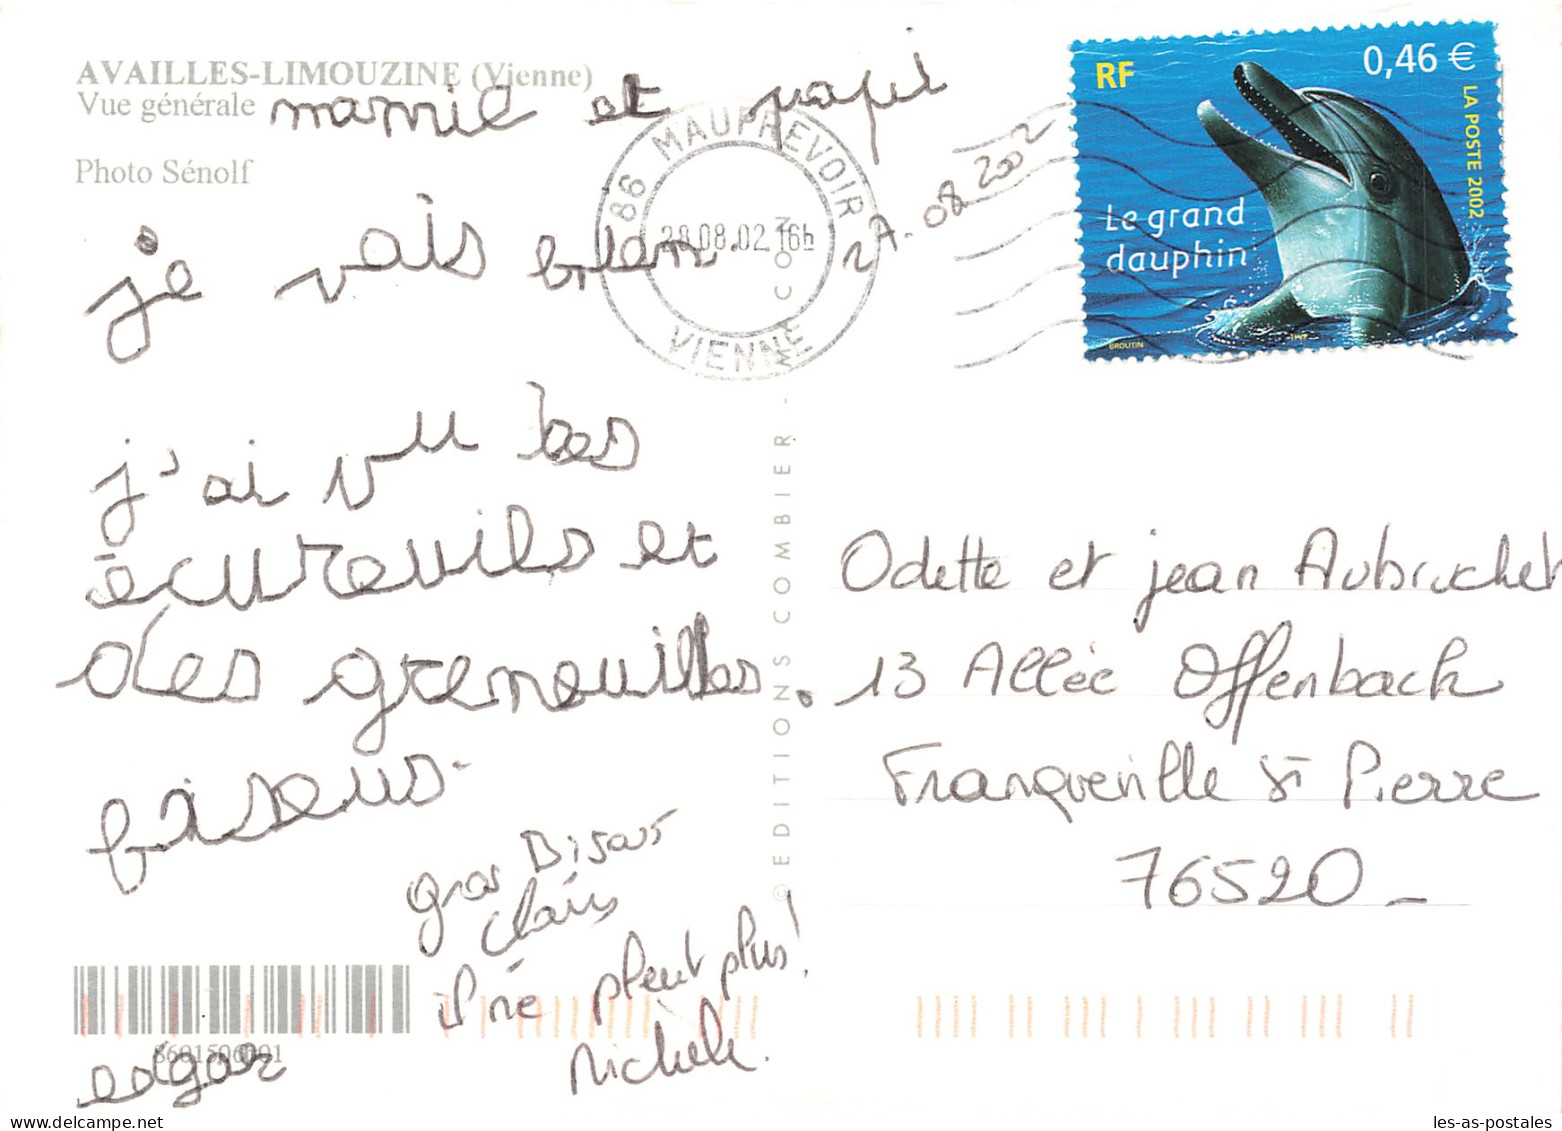 AVAILLES-LIMOUZINE (Vienne)
Vue générale
Photo Sénolf
mamie et papi
je vais bien.
j'ai vu les
écureuils et
des grenouilles.
bisous.
gros Bisous
il ne pleut plus!
Michele.
edgar
8601506001
©EDITIONS COMBIER -
86 MAUPREVOIR
28.08.02 16h
VIENNE
27.08 2002
RF
0,46 €
LA POSTE 2002
Le grand
dauphin
BROUTIN
Odette et jean Aubruchet
13 Allée Offenback
Franqueville St Pierre
76520_
les-as-postales